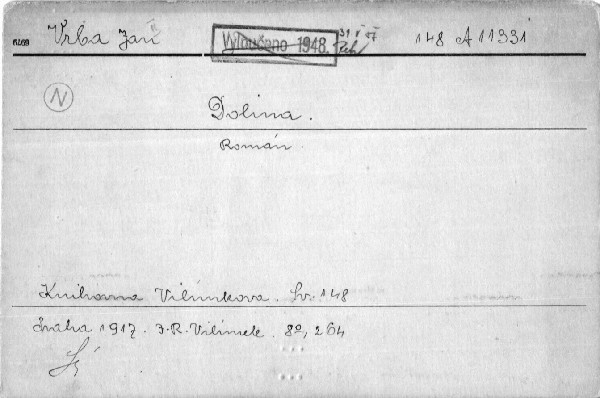 Vrba Jan
Vyloučeno 1948.
148 A 11331
N
Dolina.
Román.
Knihovna Vilímkova. Sv. 148
Praha 1917. J. R. Vilímek. 8º, 264